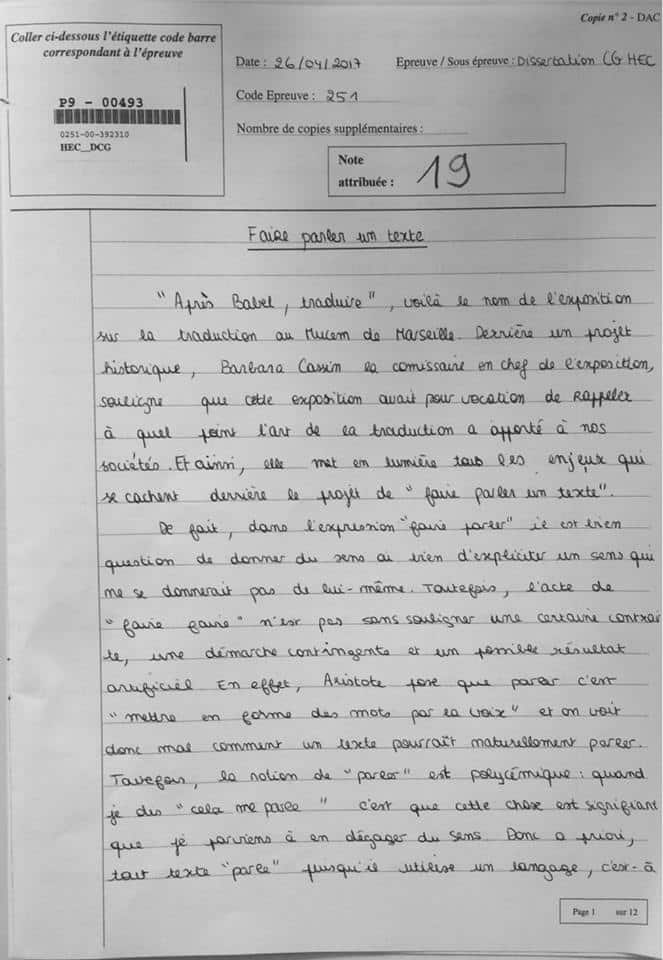 Copie n° 2 - DAC
Coller ci-dessous l'étiquette code barre
correspondant à l'épreuve
Date : 26/04/2017 Epreuve / Sous épreuve : Dissertation CG HEC
P9 - 00493
Code Epreuve : 251
0251-00-392310
HEC__DCG
Nombre de copies supplémentaires :
Note
attribuée : 19
Faire parler un texte
"Après Babel, traduire", voilà le nom de l'exposition
sur la traduction au Mucem de Marseille. Derrière un projet
historique, Barbara Cassin la comissaire en chef de l'exposition,
souligne que cette exposition avait pour vocation de Rappeler
à quel point l'art de la traduction a apporté à nos
sociétés. Et ainsi, elle met en lumière tous les enjeux qui
se cachent derrière le projet de "faire parler un texte".
De fait, dans l'expression "faire parler" il est bien
question de donner du sens ou bien d'expliciter un sens qui
ne se donnerait pas de lui-même. Toutefois, l'acte de
"faire faire" n'est pas sans souligner une certaine contrain
te, une démarche contingente et un possible résultat
artificiel En effet, Aristote pose que parler c'est
"mettre en forme des mots par la voix" et on voit
donc mal comment un texte pourrait naturellement parler.
Toutefois, la notion de "parler" est polycémique : quand
je dis "cela me parle" c'est que cette chose est signifiant
que je parviens à en dégager du sens. Donc a priori,
tout texte "parle" puisqu'il utilise un langage, c'est-à
Page 1 sur 12